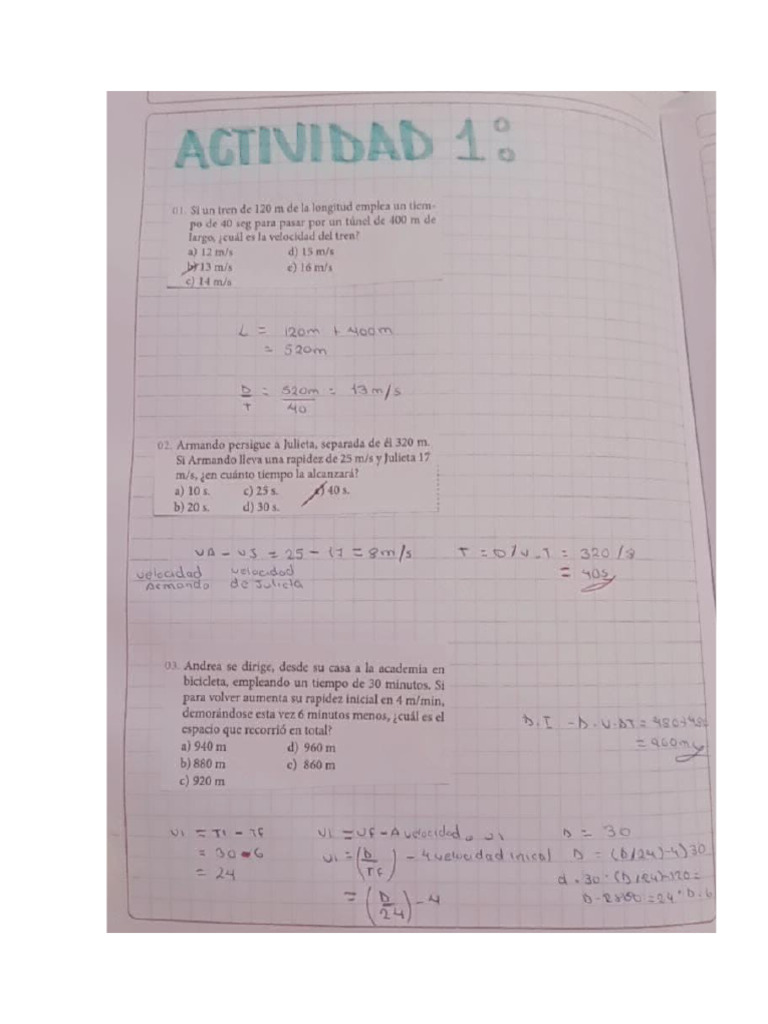 ACTIVIDAD 1:
01. Si un tren de 120 m de la longitud emplea un tiem-
po de 40 seg para pasar por un túnel de 400 m de
largo, ¿cuál es la velocidad del tren?
a) 12 m/s d) 15 m/s
b) 13 m/s e) 16 m/s
c) 14 m/s
L = 120m + 400m
= 520m
D/T = 520m/40 = 13 m/s
02. Armando persigue a Julieta, separada de él 320 m.
Si Armando lleva una rapidez de 25 m/s y Julieta 17
m/s, ¿en cuánto tiempo la alcanzará?
a) 10 s. c) 25 s. e) 40 s.
b) 20 s. d) 30 s.
VA - VJ = 25 - 17 = 8m/s T = D/V_T = 320/8
velocidad velocidad = 40s
Armando de Julieta
03. Andrea se dirige, desde su casa a la academia en
bicicleta, empleando un tiempo de 30 minutos. Si
para volver aumenta su rapidez inicial en 4 m/min,
demorándose esta vez 6 minutos menos, ¿cuál es el
espacio que recorrió en total?
a) 940 m d) 960 m
b) 880 m e) 860 m
c) 920 m
D.T = 480+480
= 960m
VI = TI - TF VI = VF - A velocidad D = 30
= 30-6 Vi = (D/TF) - 4 velocidad inicial D = (D/24)-4)30
= 24 = (D/24) - 4 d = 30·(D/24)-120=